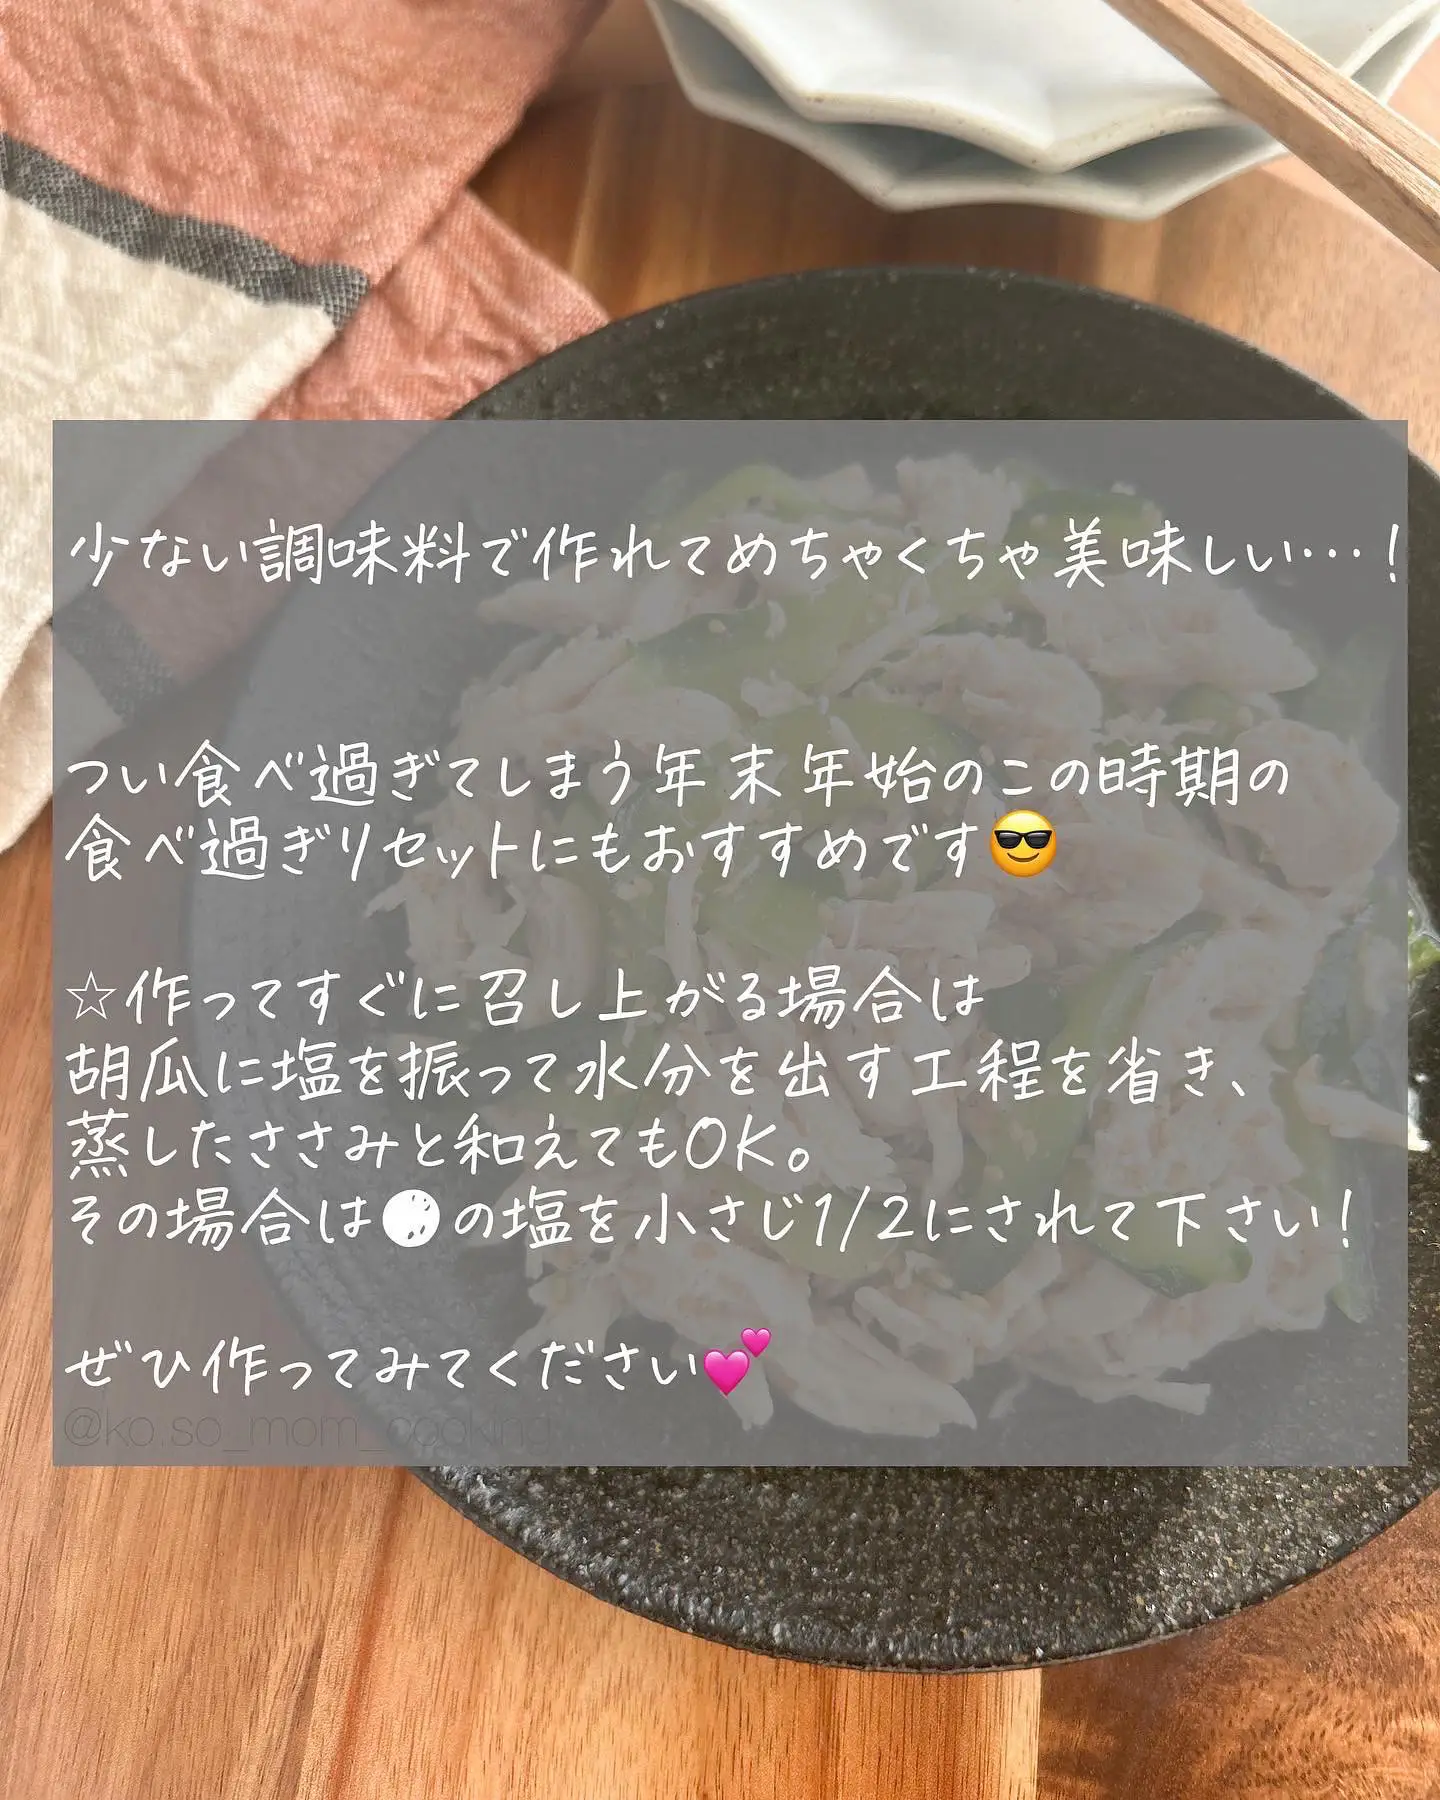 少ない調味料で作れてめちゃくちゃ美味しい…！
つい食べ過ぎてしまう年末年始のこの時期の
食べ過ぎリセットにもおすすめです😎
☆作ってすぐに召し上がる場合は
胡瓜に塩を振って水分を出す工程を省き、
蒸したささみと和えてもOK。
その場合は🌕の塩を小さじ1/2にされて下さい！
ぜひ作ってみてください💕
@ko.so_mom_cooking